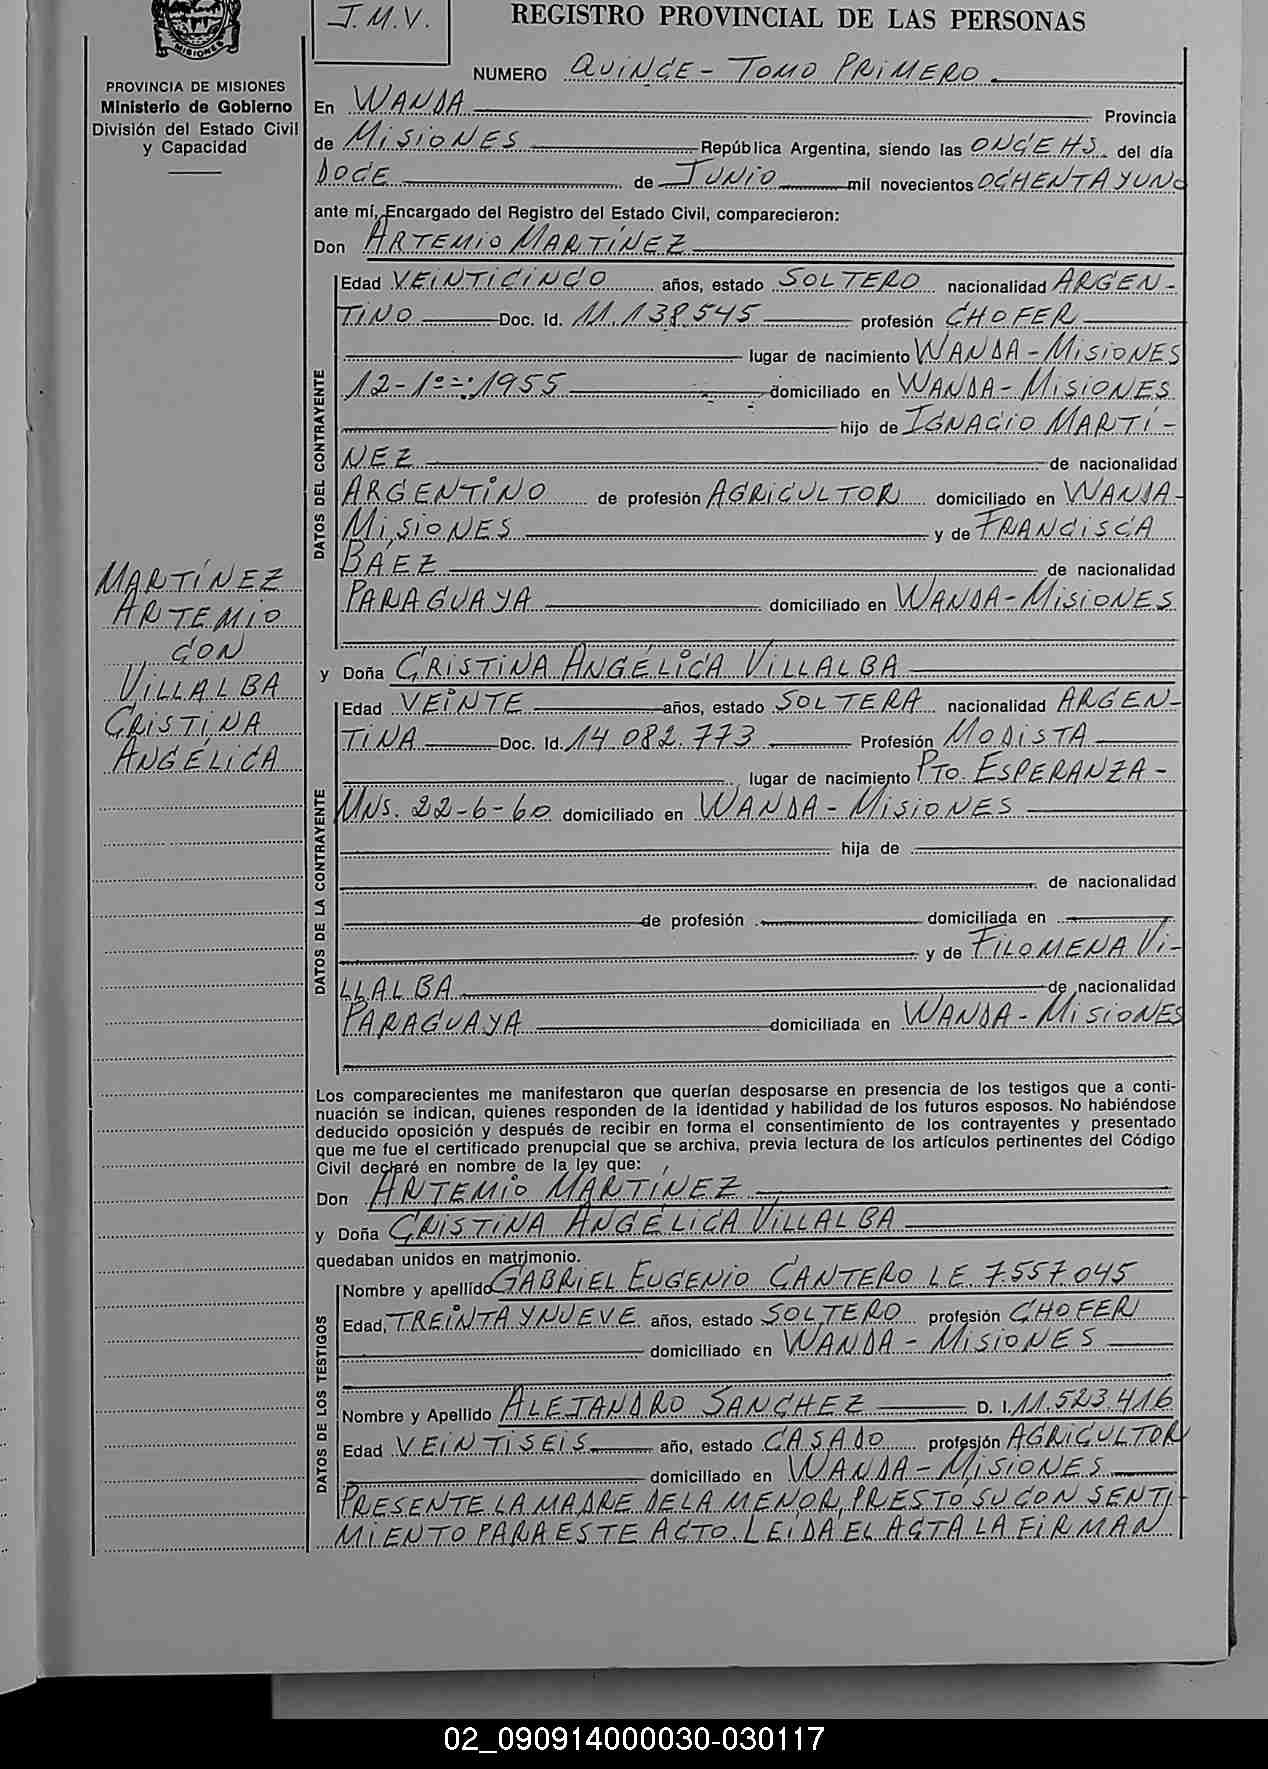 MISIONES
J.M.V.
REGISTRO PROVINCIAL DE LAS PERSONAS
PROVINCIA DE MISIONES
Ministerio de Gobierno
División del Estado Civil
y Capacidad
NUMERO QUINCE - TOMO PRIMERO
En WANDA Provincia
de MISIONES República Argentina, siendo las ONCE HS. del día
DOCE de JUNIO mil novecientos OCHENTA Y UNO
ante mí, Encargado del Registro del Estado Civil, comparecieron:
Don ARTEMIO MARTÍNEZ
DATOS DEL CONTRAYENTE
Edad VEINTICINCO años, estado SOLTERO nacionalidad ARGEN-
TINO Doc. Id. 11.138.545 profesión CHOFER
lugar de nacimiento WANDA - MISIONES
12-1º=:1955 domiciliado en WANDA - MISIONES
hijo de IGNACIO MARTÍ-
NEZ de nacionalidad
ARGENTINO de profesión AGRICULTOR domiciliado en WANDA-
MISIONES y de FRANCISCA
BÁEZ de nacionalidad
PARAGUAYA domiciliado en WANDA - MISIONES
MARTÍNEZ
ARTEMIO
CON
VILLALBA
CRISTINA
ANGÉLICA
y Doña CRISTINA ANGÉLICA VILLALBA
DATOS DE LA CONTRAYENTE
Edad VEINTE años, estado SOLTERA nacionalidad ARGEN-
TINA Doc. Id. 14.082.773 Profesión MODISTA
lugar de nacimiento PTO. ESPERANZA -
MNS. 22-6-60 domiciliado en WANDA - MISIONES
hija de
de nacionalidad
de profesión domiciliada en
y de FILOMENA VI-
LLALBA de nacionalidad
PARAGUAYA domiciliada en WANDA - MISIONES
Los comparecientes me manifestaron que querían desposarse en presencia de los testigos que a conti-
nuación se indican, quienes responden de la identidad y habilidad de los futuros esposos. No habiéndose
deducido oposición y después de recibir en forma el consentimiento de los contrayentes y presentado
que me fue el certificado prenupcial que se archiva, previa lectura de los artículos pertinentes del Código
Civil declaré en nombre de la ley que:
Don ARTEMIO MARTÍNEZ
y Doña CRISTINA ANGÉLICA VILLALBA
quedaban unidos en matrimonio.
DATOS DE LOS TESTIGOS
Nombre y apellido GABRIEL EUGENIO CANTERO L E 7.557.045
Edad, TREINTA Y NUEVE años, estado SOLTERO profesión CHOFER
domiciliado en WANDA - MISIONES
Nombre y Apellido ALEJANDRO SANCHEZ D. I. 11.523.416
Edad VEINTISEIS año, estado CASADO profesión AGRICULTOR
domiciliado en WANDA - MISIONES
PRESENTE LA MADRE DE LA MENOR, PRESTÓ SU CONSENTI-
MIENTO PARA ESTE ACTO. LEÍDA EL ACTA LA FIRMAN
02_090914000030-030117